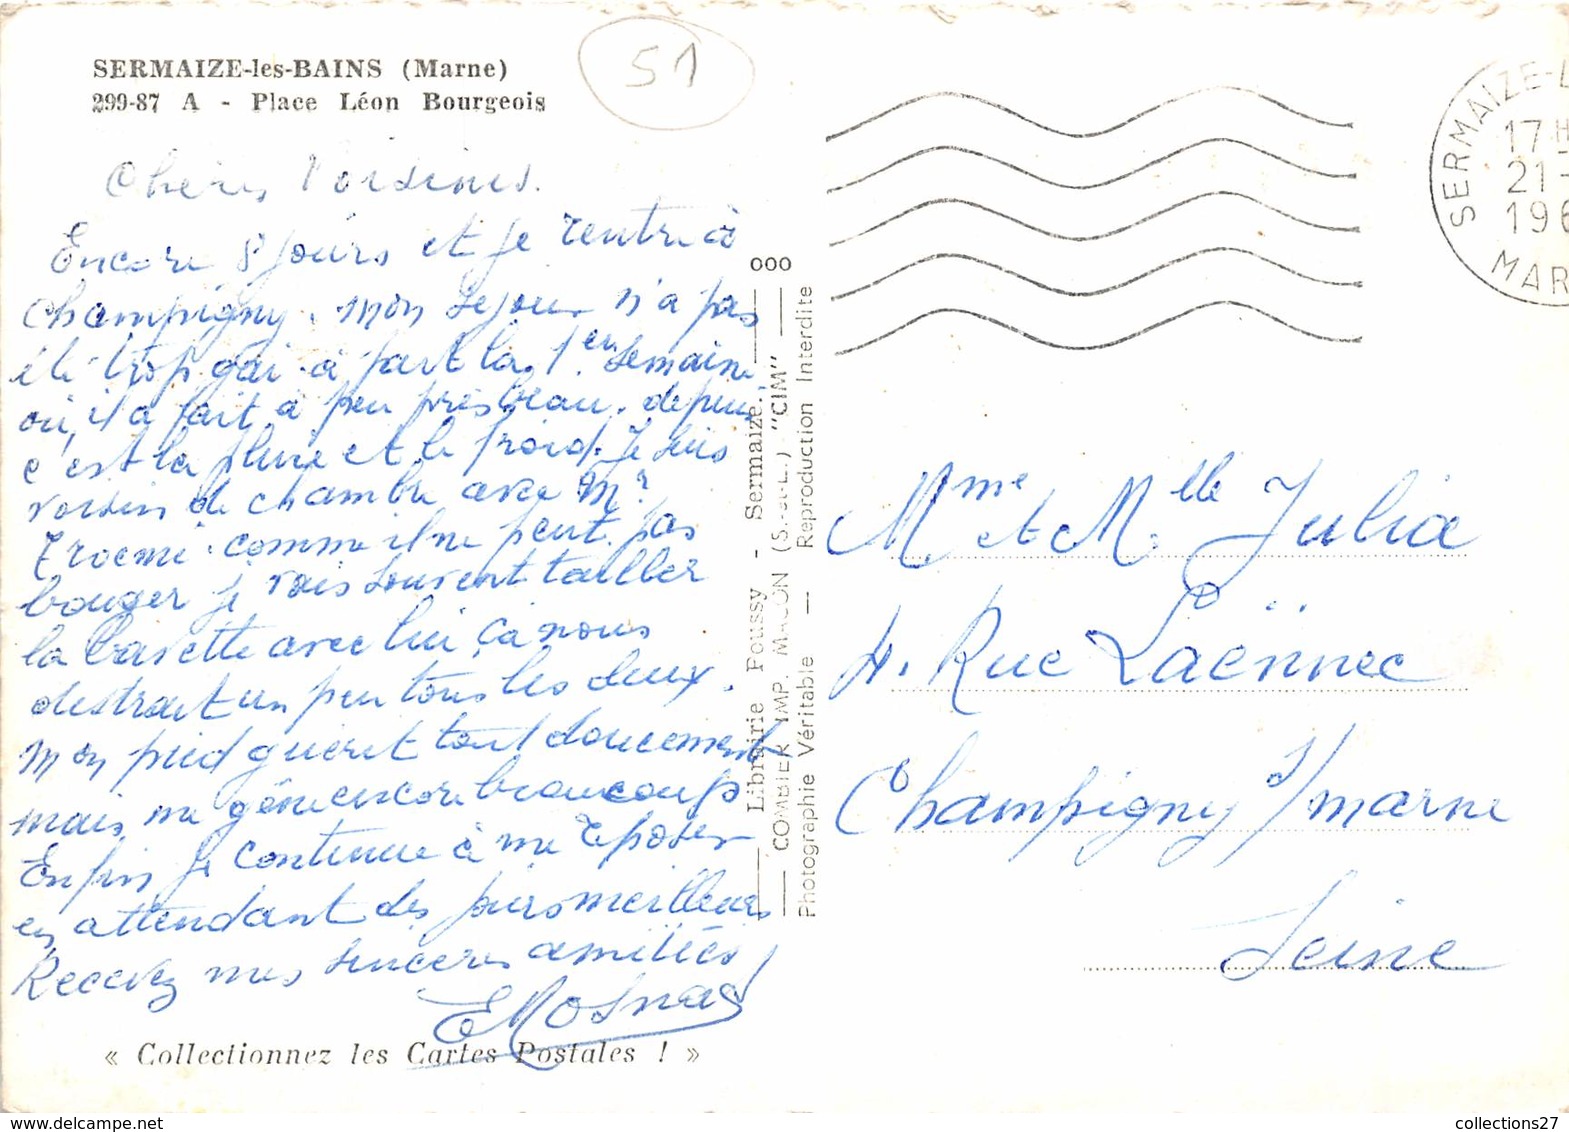 SERMAIZE-les-BAINS (Marne)
299-87 A - Place Léon Bourgeois
51
Chères Voisines.
Encore 8 jours et je rentre à
Champigny. mon séjour n'a pas
été trop gai à part la 1er semaine
où il a fait à peu près beau. depuis
c'est la pluie et le froid. Je suis
voisin de chambre avec Mr
comme il ne peut pas
bouger je vais souvent tailler
la bavette avec lui ça nous
distrait un peu tous les deux.
Mon pied guerit tout doucement
mais me gêne encore beaucoup
Enfin je continue à me reposer
en attendant des jours meilleurs
Recevez mes sincères amitiés
« Collectionnez les Cartes Postales ! »
Librairie Poussy - Sermaize.
COMBIER IMP. MACON (S.-et-L.) "CIM"
Photographie Véritable — Reproduction Interdite
ooo
SERMAIZE-L
17H
21-
196
MAR
Mme et Mlle Julia
4. Rue Laënnec
Champigny s/marne
Seine
collections27